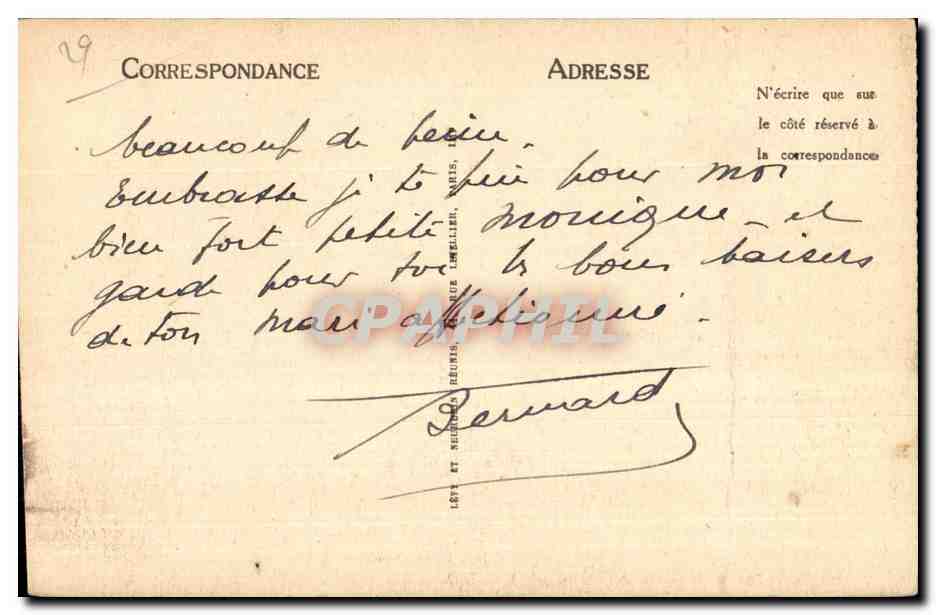 29
CORRESPONDANCE
ADRESSE
N'écrire que sur
le côté réservé à
la correspondance
beaucoup de peine.
Embrasse je te prie pour moi
bien fort petite Monique et
garde pour toi les bons baisers
de ton mari affectionné.
Bernard
LÉVY ET NEURDEIN RÉUNIS, RUE LETELLIER, PARIS,
CPAPHIL